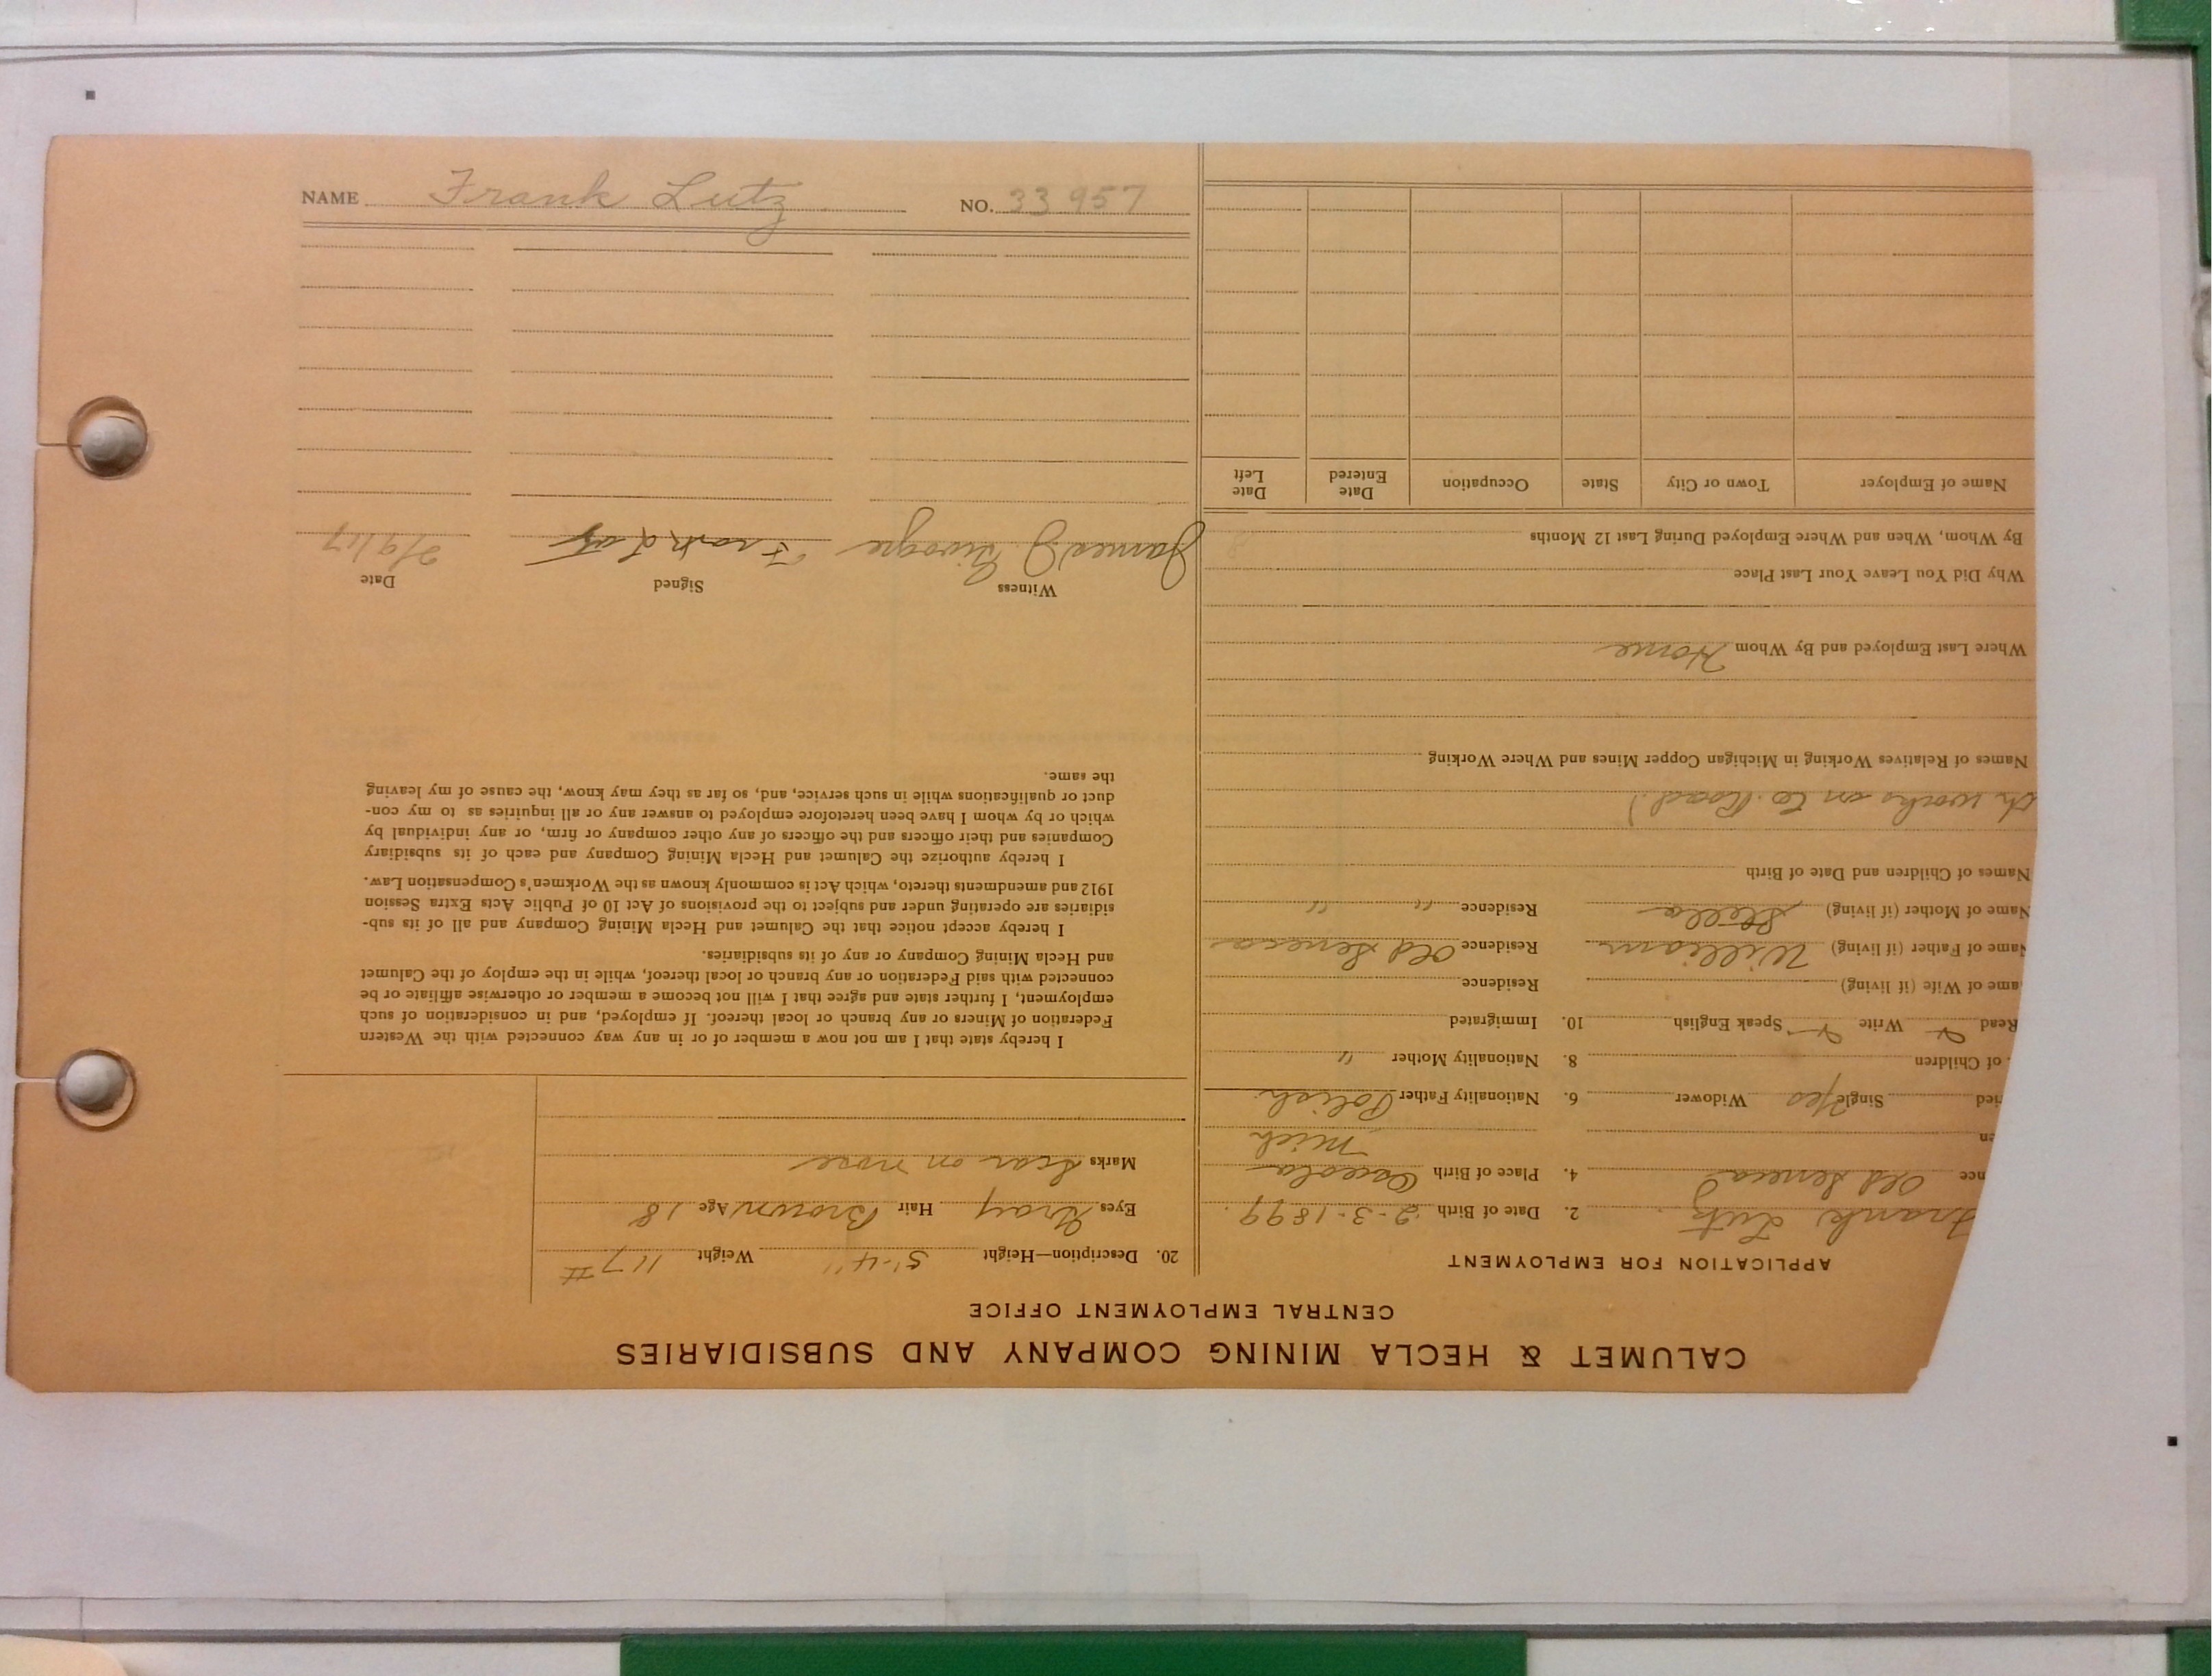 NAME Frank Lutz NO. 33957
CALUMET & HECLA MINING COMPANY AND SUBSIDIARIES
CENTRAL EMPLOYMENT OFFICE
APPLICATION FOR EMPLOYMENT
Frank Lutz 2. Date of Birth 2-3-1899
nce Old Seneca 4. Place of Birth Osceola
en Mich
ried Single Yes Widower 6. Nationality Father Polish
. of Children 8. Nationality Mother "
Read Write Speak English 10. Immigrated
ame of Wife (if living) Residence
Name of Father (if living) William Residence Old Seneca
Name of Mother (if living) Stella Residence " "
Names of Children and Date of Birth
works on Co. Road.)
Names of Relatives Working in Michigan Copper Mines and Where Working
Where Last Employed and By Whom Home
Why Did You Leave Your Last Place
By Whom, When and Where Employed During Last 12 Months
Name of Employer Town or City State Occupation Date Entered Date Left
20. Description—Height 5'-4" Weight 117 #
Eyes Gray Hair Brown Age 18
Marks Scar on nose
I hereby state that I am not now a member of or in any way connected with the Western
Federation of Miners or any branch or local thereof. If employed, and in consideration of such
employment, I further state and agree that I will not become a member or otherwise affiliate or be
connected with said Federation or any branch or local thereof, while in the employ of the Calumet
and Hecla Mining Company or any of its subsidiaries.
I hereby accept notice that the Calumet and Hecla Mining Company and all of its sub-
sidiaries are operating under and subject to the provisions of Act 10 of Public Acts Extra Session
1912 and amendments thereto, which Act is commonly known as the Workmen's Compensation Law.
I hereby authorize the Calumet and Hecla Mining Company and each of its subsidiary
Companies and their officers and the officers of any other company or firm, or any individual by
which or by whom I have been heretofore employed to answer any or all inquiries as to my con-
duct or qualifications while in such service, and, so far as they may know, the cause of my leaving
the same.
Witness Signed Date
James Frank 2/9/17